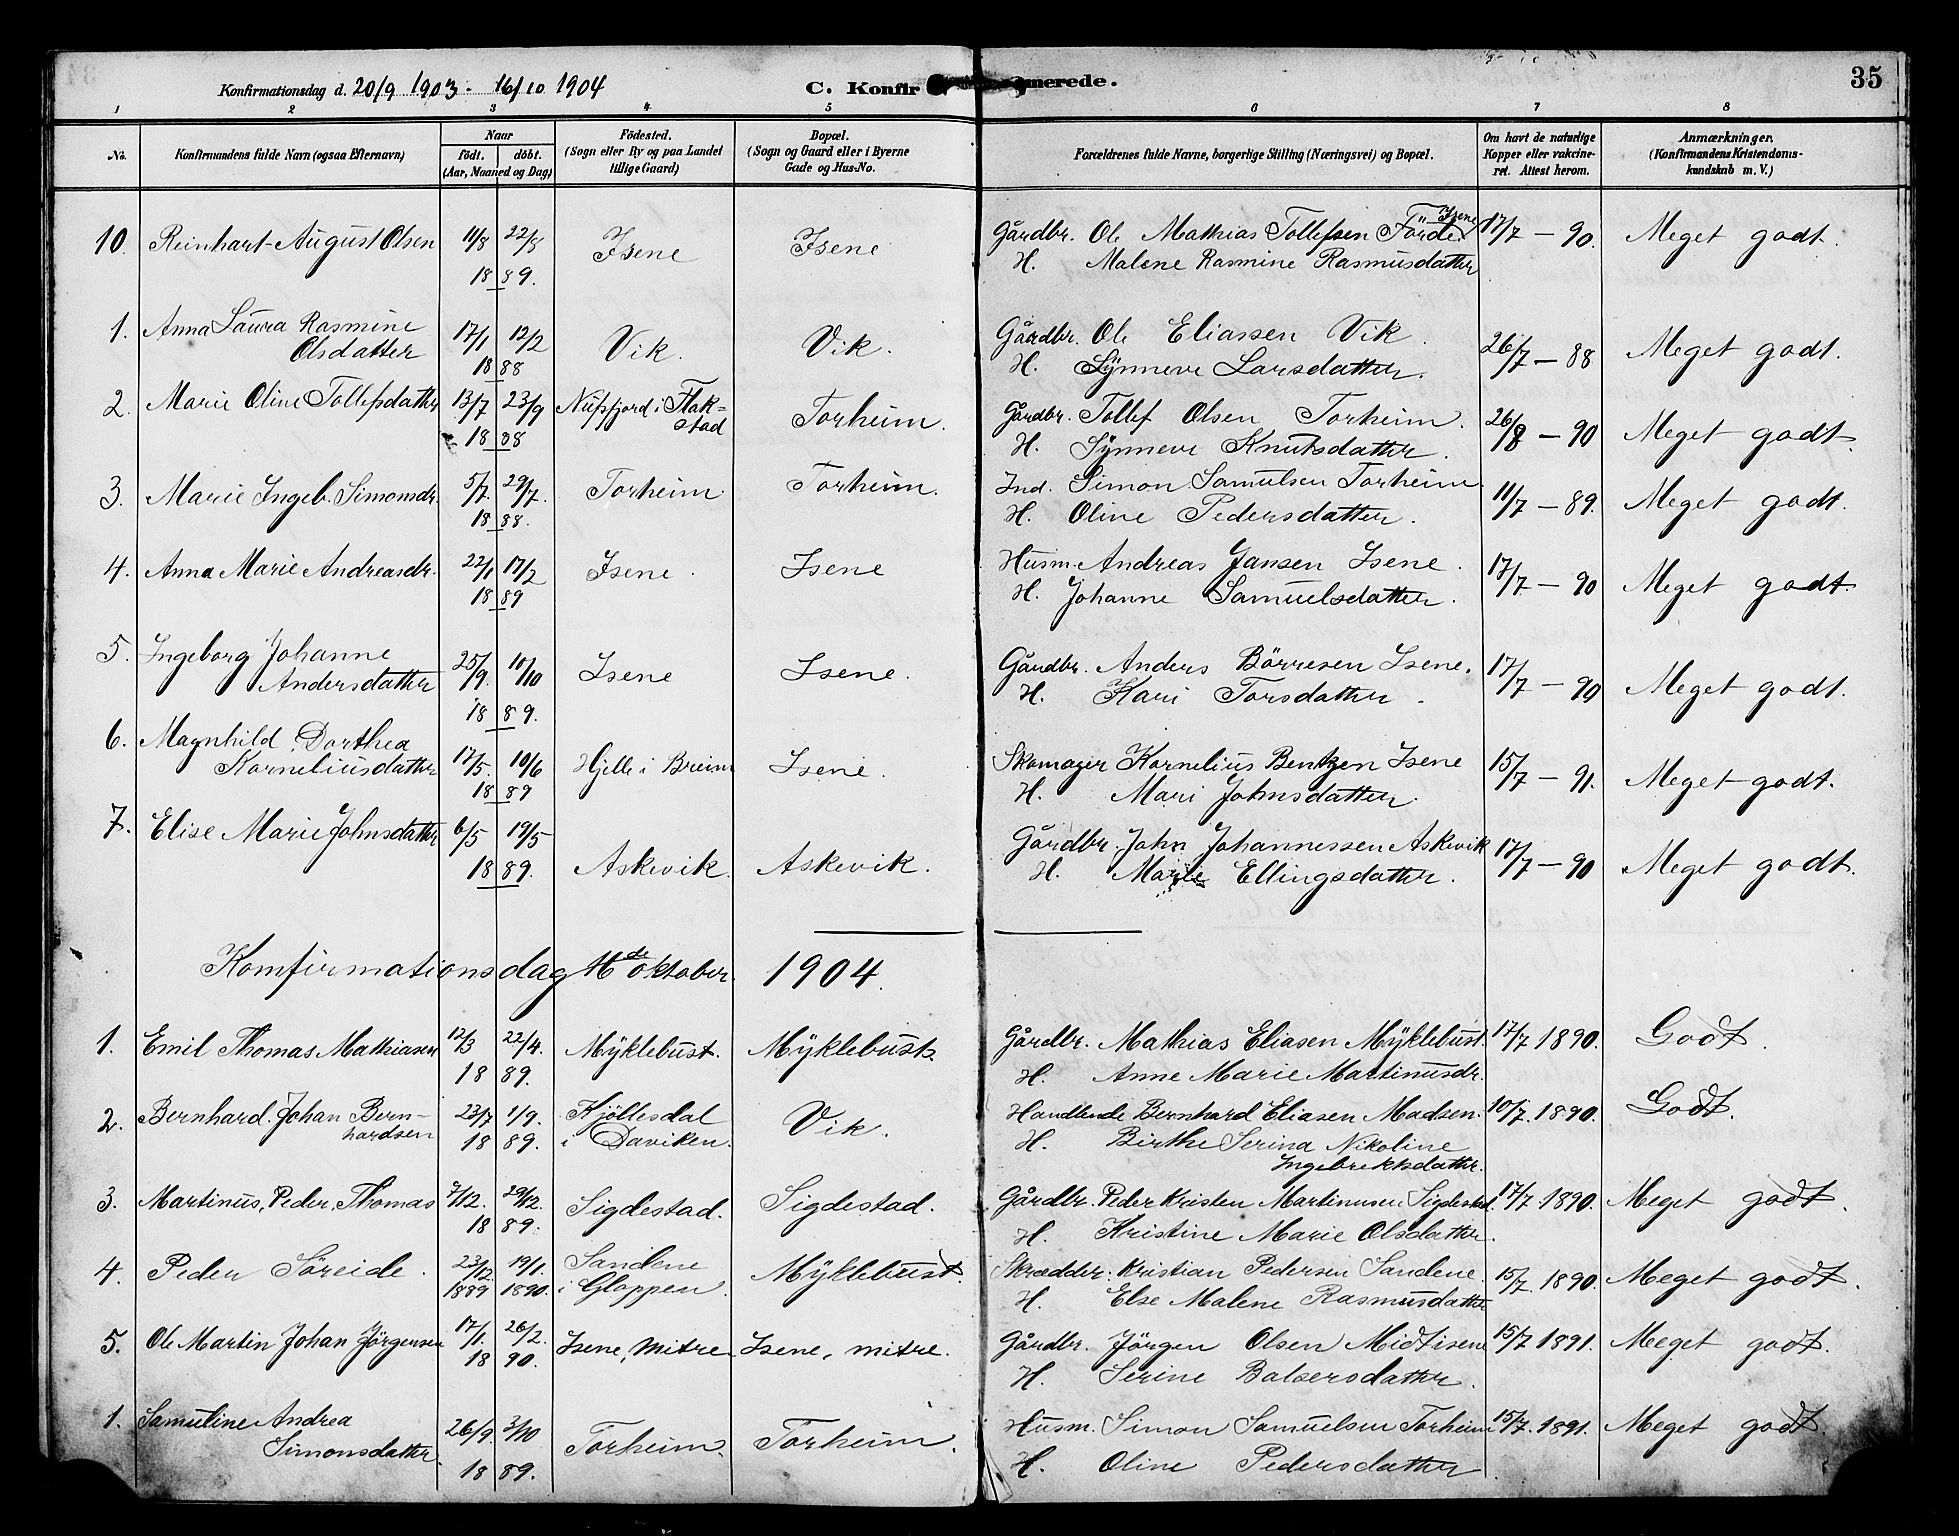 Konfirmationsdag d. 20/9 1903 - 16/10 1904 C. Konfirmerede. 35
1 2 3 4 5 6 7 8
No. Konfirmandens fulde Navn (ogsaa Efternavn) Naar födt. döbt. (Aar, Maaned og Dag) Födested. (Sogn eller By og paa Landet tillige Gaard) Bopæl. (Sogn og Gaard eller i Byerne Gade og Hus-No.) Forældrenes fulde Navne, borgerlige Stilling (Næringsvei) og Bopæl. Om havt de naturlige Kopper eller vakcineret. Attest herom. Anmærkninger. (Konfirmandens Kristendomskundskab m. V.)
10. Reinhart August Olsen 11/8 22/8 Isene Isene Gårdbr. Ole Mathias Tollefsen Förde Isene 17/7 — 90. Meget godt.
18 89. H. Malene Rasmine Rasmusdatter
1. Anna Laura Rasmine 17/1 12/2 Vik. Vik. Gårdbr. Ole Eliassen Vik. 26/7 — 88 Meget godt.
Olsdatter 18 88 H. Synneve Larsdatter.
2. Marie Oline Tollefsdatter 13/7 23/9 Nufsfjord i Flak= Torheim. Gårdbr. Tollef Olsen Torheim. 26/8 — 90 Meget godt.
18 88 stad H. Synneve Knutsdatter.
3. Marie Ingeb. Simonsdr. 5/7. 29/7. Torheim Torheim. Ind. Simon Samulsen Torheim 11/7 — 89. Meget godt.
18 88. H. Oline Pedersdatter.
4. Anna Marie Andreasdr. 22/1 17/2 Isene. Isene Husm. Andreas Jansen Isene. 17/7 — 90 Meget godt.
18 89 H. Johanne Samuelsdatter.
5. Ingeborg Johanne 25/9. 10/10 Isene Isene. Gårdbr. Anders Börresen Isene. 17/7 — 90 Meget godt.
Andersdatter 18 89. H. Kari Torsdatter.
6. Magnhild Dorthea 17/5. 10/6 Hjelle i Breim Isene. Skomager Kornelius Bentzen Isene 15/7 — 91. Meget godt.
Korneliusdatter 18 89 H. Mari Johnsdatter.
7. Elise Marie Johnsdatter 6/5 19/5 Askevik. Askevik. Gårdbr. John Johannessen Askevik 17/7 — 90 Meget godt.
18 89. H. Marie Ellingsdatter.
Konfirmationsdag 16de oktober 1904.
1. Emil Thomas Mathiasen 12/3 22/4. Myklebust. Myklebust. Gårdbr. Mathias Eliasen Myklebust. 17/7 1890. Godt.
18 89. H. Anne Marie Martinusdr.
2. Bernhard Johan Bern- 23/7 1/9. Kjöllesdal Vik. Handlende Bernhard Eliasen Madsen. 10/7. 1890. Godt.
hardsen 18 89. i Daviken. H. Birthe Serina Nikoline
Ingebrektsdatter.
3. Martinus, Peder, Thomas 7/12. 29/12. Sigdestad. Sigdestad. Gårdbr. Peder Kristen Martinusen Sigdestad. 17/7 1890. Meget godt.
18 89. H. Kristine Marie Olsdatter.
4. Peder Söreide. 23/12. 19/1. Sandene Myklebust. Skrædder. Kristian Pedersen Sandene. 15/7. 1890. Meget godt.
1889 1890. i Gloppen. H. Else Malene Rasmusdatter
5. Ole Martin Johan Jörgensen 17/1. 26/2. Isene, mitre Isene, mitre. Gårdbr. Jörgen Olsen Midtisene 15/7 1891. Meget godt.
18 90. H. Serine Balsersdatter.
1. Samuline Andrea 26/9. 3/10 Torheim. Torheim. Husm. Simon Samuelsen Torheim 15/7. 1891. Meget godt.
Simonsdatter. 18 89. H. Oline Pedersdatter.